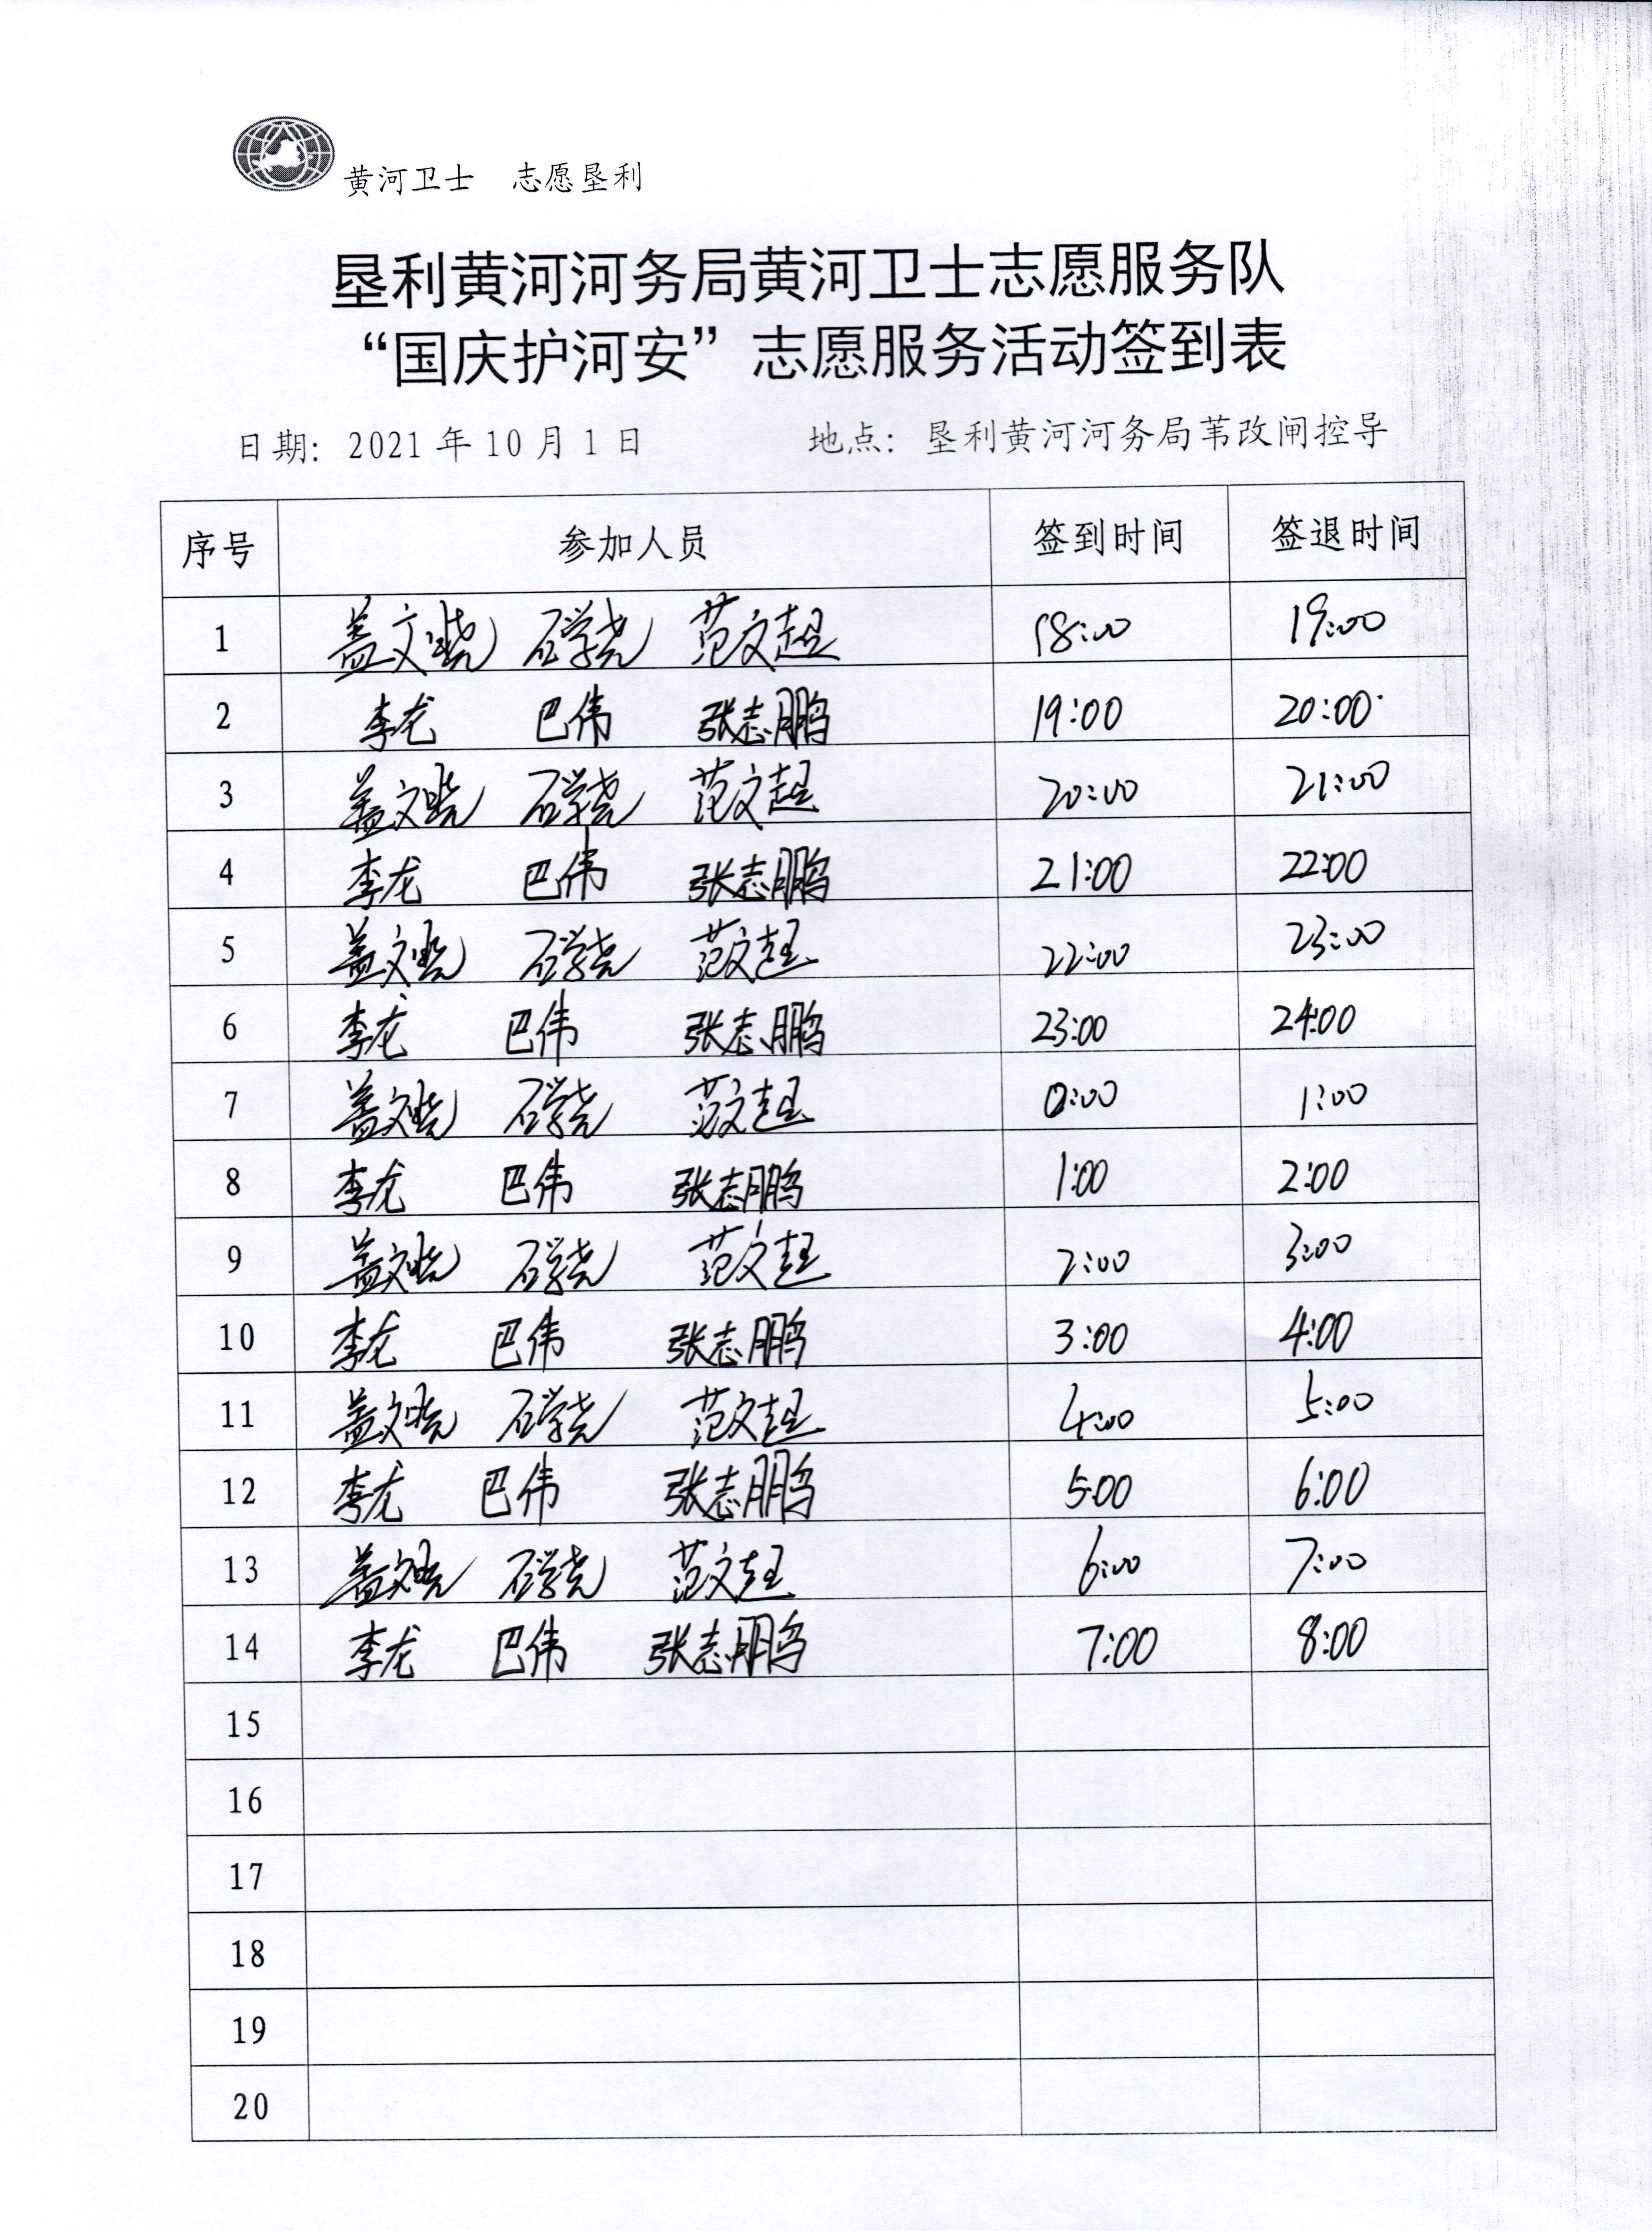 黄河卫士 志愿垦利
垦利黄河河务局黄河卫士志愿服务队
“国庆护河安”志愿服务活动签到表
日期：2021年10月1日 地点：垦利黄河河务局苇改闸控导
序号 参加人员 签到时间 签退时间
1 盖文晓 石学尧 范文超 18:00 19:00
2 李龙 巴伟 张志鹏 19:00 20:00
3 盖文晓 石学尧 范文超 20:00 21:00
4 李龙 巴伟 张志鹏 21:00 22:00
5 盖文晓 石学尧 范文超 22:00 23:00
6 李龙 巴伟 张志鹏 23:00 24:00
7 盖文晓 石学尧 范文超 0:00 1:00
8 李龙 巴伟 张志鹏 1:00 2:00
9 盖文晓 石学尧 范文超 2:00 3:00
10 李龙 巴伟 张志鹏 3:00 4:00
11 盖文晓 石学尧 范文超 4:00 5:00
12 李龙 巴伟 张志鹏 5:00 6:00
13 盖文晓 石学尧 范文超 6:00 7:00
14 李龙 巴伟 张志鹏 7:00 8:00
15
16
17
18
19
20